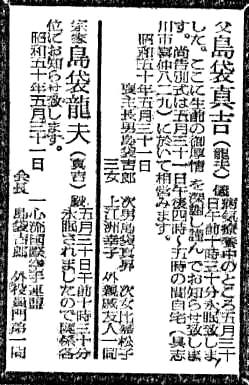 父 島袋貞吉(龍夫)儀
病気療養中のところ五月三十
日午前十時三十分永眠致しま
した。ここに生前の御厚情を深謝し謹んでお知らせ致しま
す。尚告別式は五月三十一日午後四時〜五時の間自宅(具志
川市 仲八二九)に於いて相営みます。
昭和五十年五月三十一日
喪主長男島袋吉郎
次男島袋真昇 次女比嘉松子
三女上江洲幸子 外親戚友人一同
宗家 島袋龍夫(貞吉)殿
五月三十日午前十時三十分
永眠されましたので関係各
位にお知らせ致します。
昭和五十年五月三十一日
一心流国際空手連盟
会長 島袋吉郎 外役員門弟一同